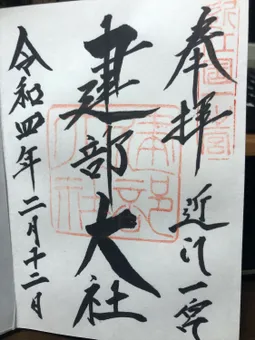 奉拝
近江一宮
建部大社
令和四年二月十二日